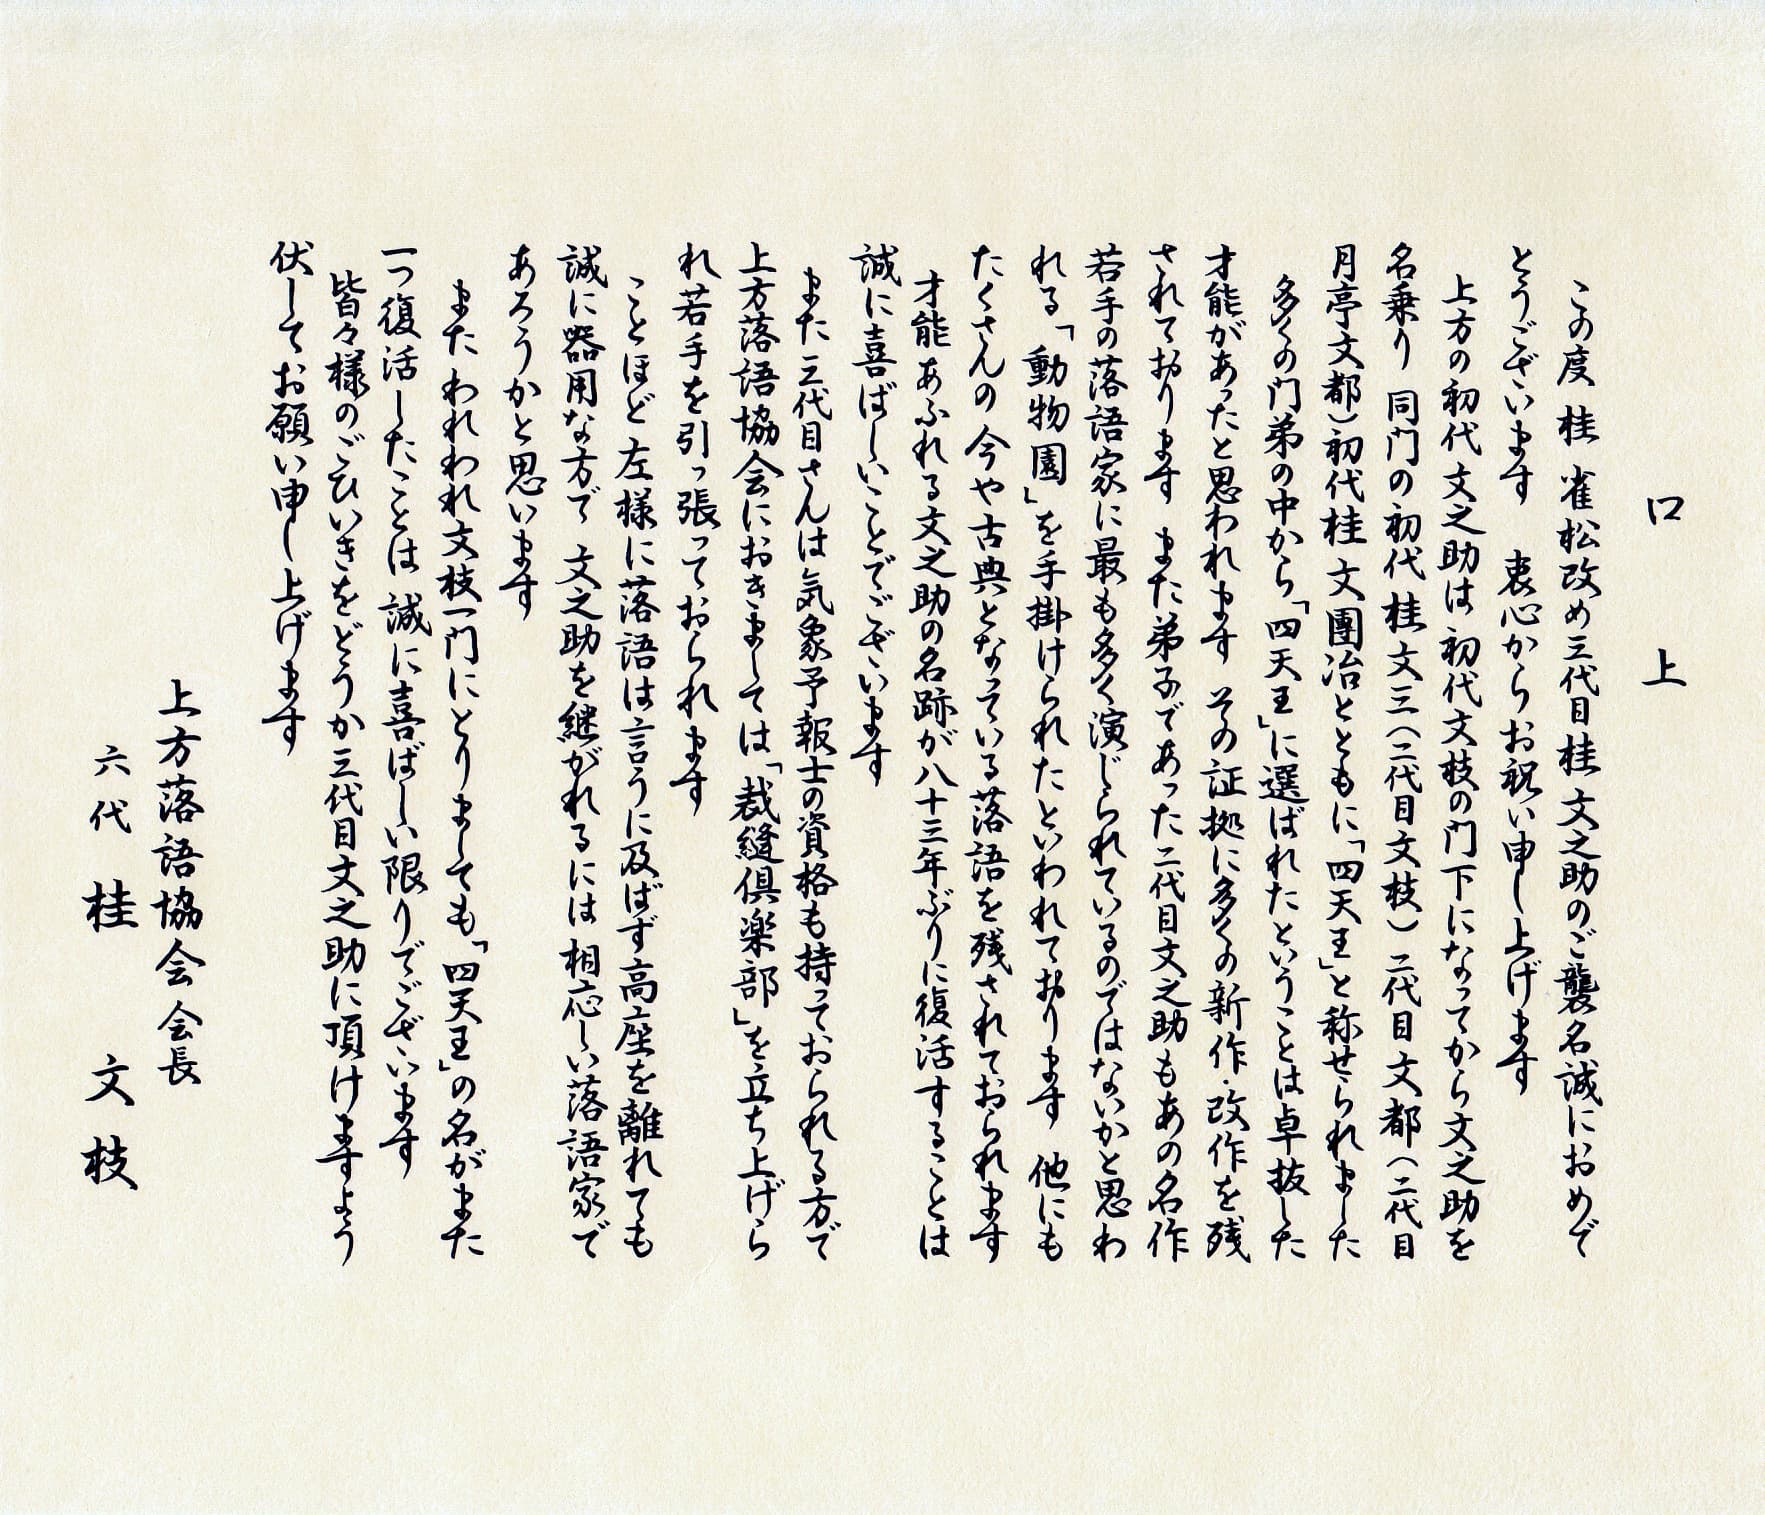 口上
この度 桂 雀松改め三代目桂 文之助のご襲名誠におめで
とうございます 衷心からお祝い申し上げます
上方の初代文之助は初代文枝の門下になってから文之助を
名乗り 同門の初代桂文三(二代目文枝)二代目文都(二代目
月亭文都)初代桂文團治とともに「四天王」と称せられました
多くの門弟の中から「四天王」に選ばれたということは卓抜した
才能があったと思われます その証拠に多くの新作・改作を残
されております また弟子であった二代目文之助もあの名作
若手の落語家に最も多く演じられているのではないかと思わ
れる「動物園」を手掛けられたといわれております 他にも
たくさんの今や古典となっている落語を残されておられます
才能あふれる文之助の名跡が八十三年ぶりに復活することは
誠に喜ばしいことでございます
また三代目さんは気象予報士の資格も持っておられる方で
上方落語協会におきましては「裁縫倶楽部」を立ち上げら
れ若手を引っ張っておられます
ことほど左様に落語は言うに及ばず高座を離れても
誠に器用な方で 文之助を継がれるには相応しい落語家で
あろうかと思います
また われわれ文枝一門にとりましても「四天王」の名がまた
一つ復活したことは誠に喜ばしい限りでございます
皆々様のごひいきをどうか三代目文之助に頂けますよう
伏してお願い申し上げます
上方落語協会会長
六代 桂 文枝